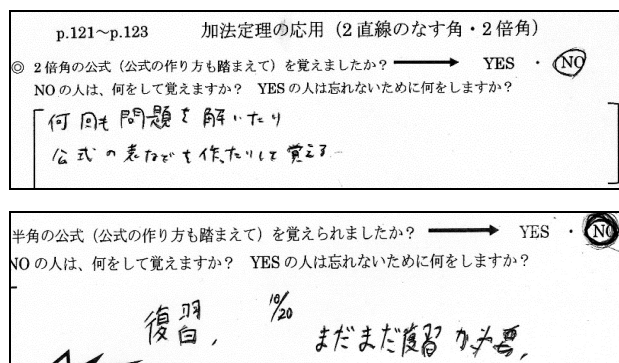 p.121～p.123 加法定理の応用（2直線のなす角・2倍角）
◎ 2倍角の公式（公式の作り方も踏まえて）を覚えましたか？ YES ・ NO
NOの人は、何をして覚えますか？ YESの人は忘れないために何をしますか？
何回も問題を解いたり
公式の表などを作ったりして覚える
半角の公式（公式の作り方も踏まえて）を覚えられましたか？ YES ・ NO
NOの人は、何をして覚えますか？ YESの人は忘れないために何をしますか？
復習, 10/20 まだまだ復習が必要,